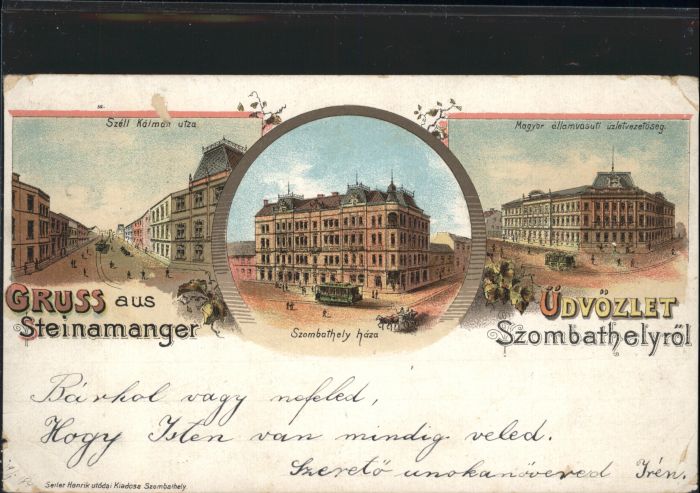 Széll Kálmán utza
Magyar államvasuti üzletvezetőség.
GRUSS aus
Steinamanger
Szombathely háza
ÜDVÖZLET
Szombathelyről
Bárhol vagy nefeled,
Hogy Isten van mindig veled.
Szerető unokanővered Irén.
Seiler Henrik utódai Kiadása Szombathely